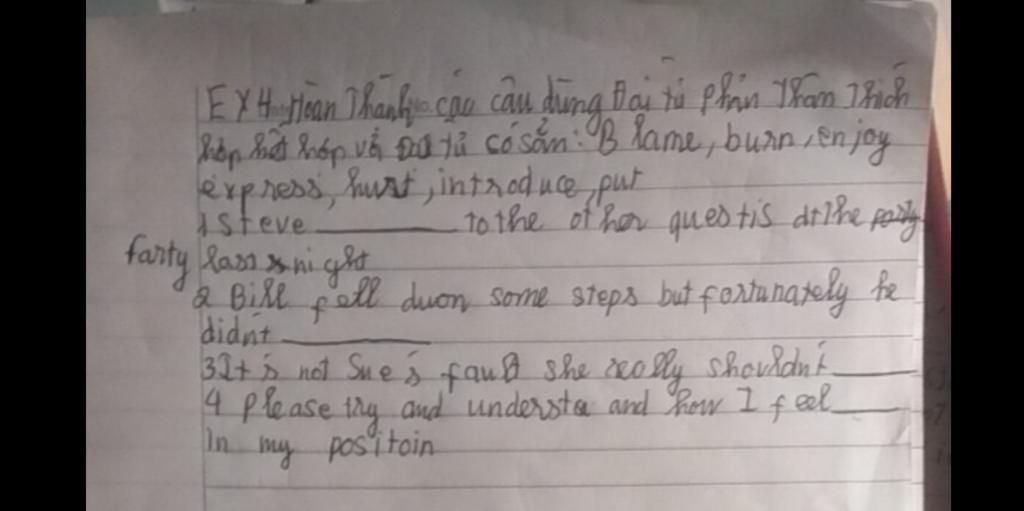 EX4 Hoàn Thành các câu dùng Đại từ phản Thân Thích
hợp kết hợp với từ có sẵn: Blame, burn, enjoy
express, hurt, introduce, put
1 Steve ______ to the other questis at the party
farty lass night
2 Bill fell duon some steps but fortunately he
didn't ______
3 It is not Sue's fault she really shouldn't ______
4 please try and understa and how I feel ______
In my positoin